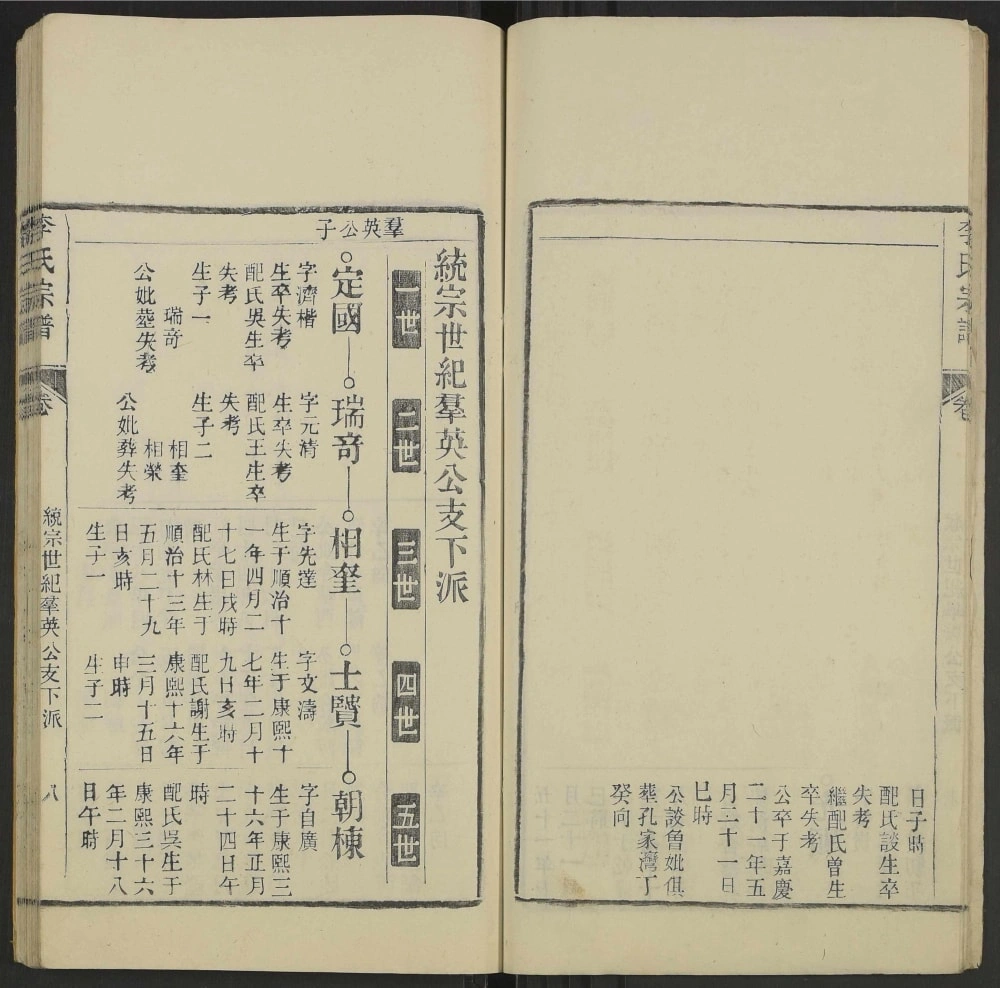 李氏宗譜
卷
日子時
配氏談生卒
失考
繼配氏曾生
卒失考
公卒于嘉慶
二十一年五
月二十一日
巳時
公談魯妣俱
葬孔家灣丁
癸向
統宗世紀羣英公支下派
一世
二世
三世
四世
五世
羣英公子
定國
字濟楷
生卒失考
配氏吳生卒
失考
生子一
瑞竒
公妣塟失考
瑞竒
字元清
生卒失考
配氏王生卒
失考
生子二
相奎
相榮
公妣葬失考
相奎
字先達
生于順治十
一年四月二
十七日戌時
配氏林生于
順治十三年
五月二十九
日亥時
生子一
士賢
字文濤
生于康熙十
七年二月十
九日亥時
配氏謝生于
康熙十六年
三月十五日
申時
生子二
朝棟
字自廣
生于康熙三
十六年正月
二十四日午
時
配氏吳生于
康熙三十六
年二月十八
日午時
李氏宗譜
卷
統宗世紀羣英公支下派
八